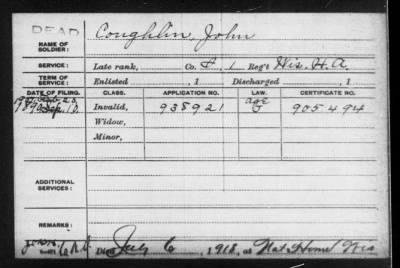 DEAD
NAME OF SOLDIER: Coughlin, John
SERVICE: Late rank, Co. F, 1 Reg't Wis. H.A.
TERM OF SERVICE: Enlisted , 1 Discharged , 1
DATE OF FILING. CLASS. APPLICATION NO. LAW. CERTIFICATE NO.
Invalid, 938921 age 905494
Widow,
Minor,
ADDITIONAL SERVICES:
REMARKS:
Died July 6, 1918, at Nat. Home Wis